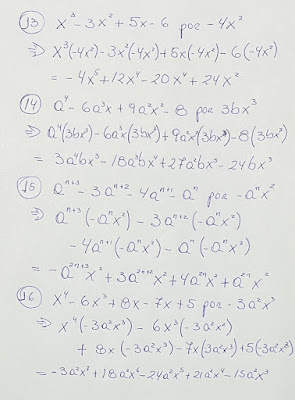 13 x³ - 3x² + 5x - 6 por - 4x²
⇒ x³(-4x²) - 3x²(-4x²) + 5x(-4x²) - 6(-4x²)
= -4x⁵ + 12x⁴ - 20x⁴ + 24x²
14 a⁴ - 6a³x + 9a²x² - 8 por 3bx³
⇒ a⁴(3bx³) - 6a³x(3bx³) + 9a²x²(3bx³) - 8(3bx³)
= 3a⁴bx³ - 18a³bx⁴ + 27a²bx⁵ - 24bx³
15 aⁿ⁺³ - 3aⁿ⁺² - 4aⁿ⁺¹ - aⁿ por -aⁿx²
⇒ aⁿ⁺³(-aⁿx²) - 3aⁿ⁺²(-aⁿx²)
- 4aⁿ⁺¹(-aⁿx²) - aⁿ(-aⁿx²)
= -a²ⁿ⁺³x² + 3a²ⁿ⁺²x² + 4a²ⁿx² + a²ⁿx²
16 x⁴ - 6x³ + 8x - 7x + 5 por - 3a²x³
⇒ x⁴(-3a²x³) - 6x³(-3a²x³)
+ 8x(-3a²x³) - 7x(3a²x³) + 5(-3a²x³)
= -3a²x⁷ + 18a²x⁶ - 24a²x⁵ + 21a²x⁴ - 15a²x³